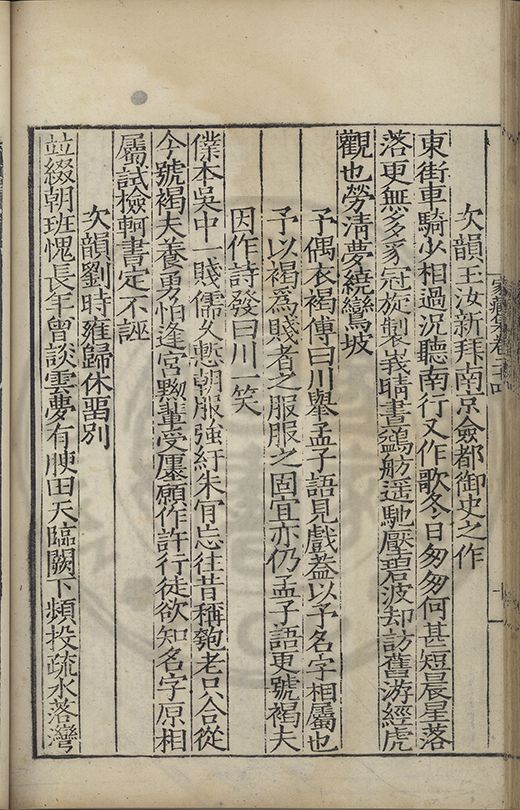 次韻王汝新拜南京僉都御史之作
東街車騎少相過況聽南行又作歌冬日匆匆何甚短晨星落
落更無多豸冠旋製峩晴晝鷁舫遥馳壓碧波却訪舊游經虎
觀也勞清夢繞鸞坡
予偶衣褐傅曰川舉孟子語見戲葢以予名字相屬也
予以褐爲賤者之服服之固宜亦仍孟子語更號褐夫
因作詩發曰川一笑
僕本吳中一賤儒久慙朝服強紆朱肎忘往昔稱匏老只合從
今號褐夫養勇怕逢宫黝輩受廛願作許行徒欲知名字原相
屬試檢軻書定不誣
次韻劉時雍歸休畱別
竝綴朝班愧長年曾談雲夢有腴田天臨闕下頻投疏水落灣